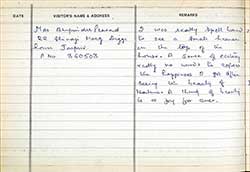 DATE
VISITOR'S NAME & ADDRESS
REMARKS
Mrs Bhupinder Prasad
22 Shivaji Marg
Jaipur.
P No 360508
I was really Spell bound
to see a small heaven
on the top of the
house. A sense of
really no words to express
the happiness I got after
seeing the beauty of
Nature. A thing of beauty
is a joy for ever.